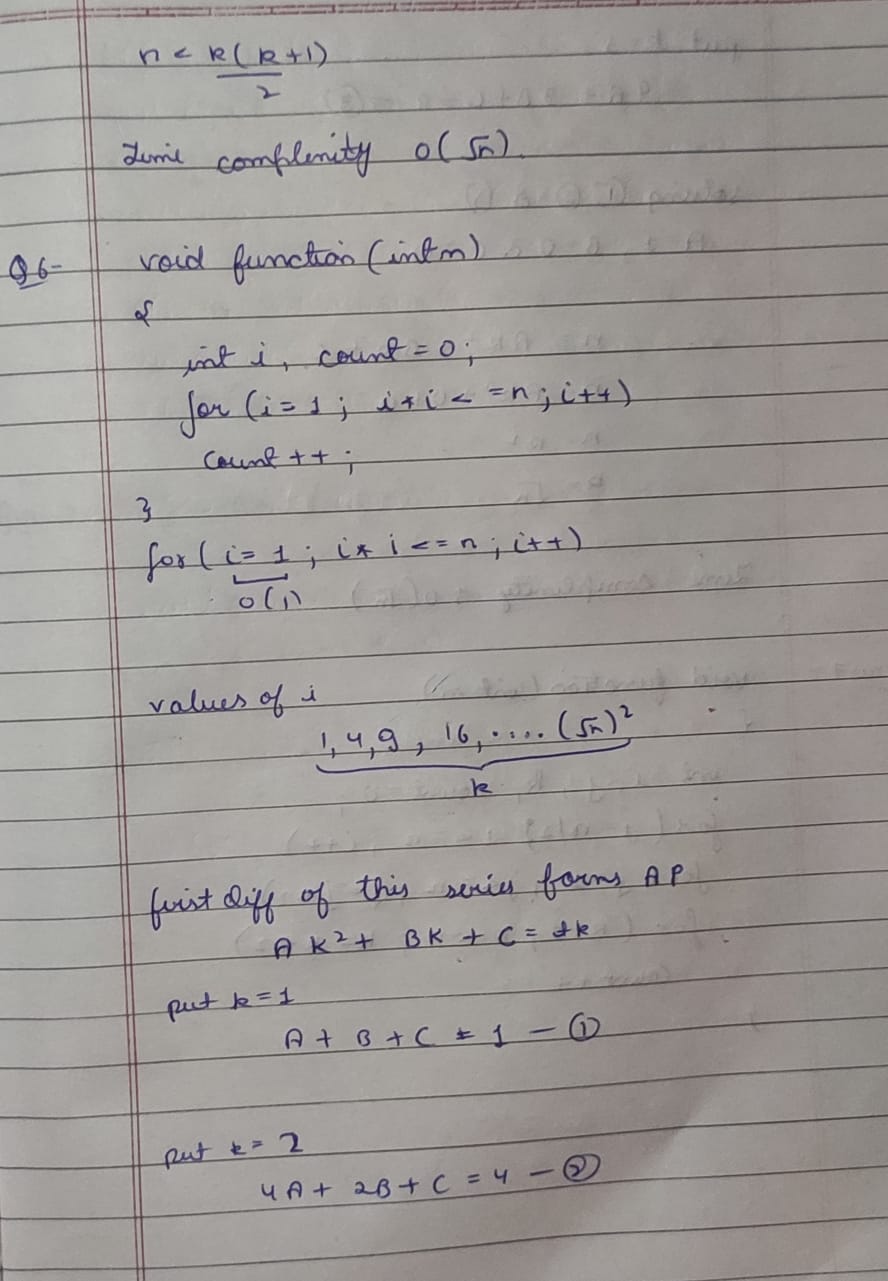 n < k(k+1)
2
Time complexity O(√n).
Q6-
void function (int n)
{
int i, count = 0;
for (i = 1; i*i < =n; i++)
count ++;
}
for (i= 1; i* i <= n; i++)
O(1)
values of i
1, 4, 9, 16, .... (√n)²
k
first diff of this series forms AP
AK² + BK + C = tk
put k = 1
A + B + C = 1 — ①
put k = 2
4A + 2B + C = 4 — ②